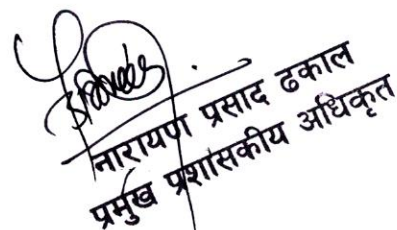 नारायण प्रसाद ढकाल
प्रमुख प्रशासकीय अधिकृत